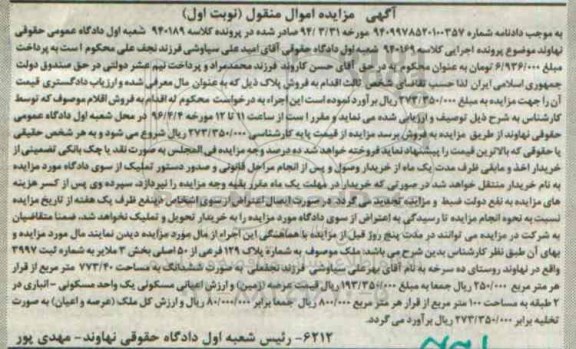 آگهی مزایده اموال منقول (نوبت اول)
به موجب دادنامه شماره ۹۴۰۹۹۷۸۵۲۰۱۰۰۳۵۷ مورخه ۹۴/۳/۳۱ صادر شده در پرونده کلاسه ۹۴۰۱۸۹ شعبه اول دادگاه عمومی حقوقی
نهاوند موضوع پرونده اجرایی کلاسه ۹۴۰۱۶۹ شعبه اول دادگاه حقوقی آقای امید علی سیاوشی فرزند نجف علی محکوم است به پرداخت
مبلغ ۶/۹۳۶/۰۰۰ تومان به عنوان محکوم به در حق آقای حسن کاروند فرزند محمدمراد و پرداخت نیم عشر دولتی در حق صندوق دولت
جمهوری اسلامی ایران لذا حسب تقاضای شخص ثالث اقدام به فروش پلاک ذیل که به عنوان مال معرفی شده و ارزیاب دادگستری قیمت
آن را جهت مزایده به مبلغ ۲۷۳/۳۵۰/۰۰۰ ریال برآورد نموده است این اجراء به درخواست محکوم له اقدام به فروش اقلام موصوف که توسط
کارشناس به شرح ذیل توصیف و ارزیابی شده می نماید و مقرر است از ساعت ۱۱ تا ۱۲ مورخه ۹۶/۴/۴ در محل شعبه اول دادگاه عمومی
حقوقی نهاوند از طریق مزایده به فروش برسد مزایده از قیمت پایه کارشناسی ۲۷۳/۳۵۰/۰۰۰ ریال شروع می شود و به هر شخص حقیقی
یا حقوقی که بالاترین قیمت را پیشنهاد نماید فروخته خواهد شد ده درصد وجه مزایده فی المجلس به صورت نقد یا چک بانکی تضمینی از
خریدار اخذ و مابقی ظرف مدت یک ماه از خریدار وصول و پس از انجام مراحل قانونی و صدور دستور تملیک از سوی دادگاه مورد مزایده
به نام خریدار منتقل خواهد شد در صورتی که خریدار در مهلت یک ماه مقرر بقیه وجه مزایده را نپردازد، سپرده وی پس از کسر هزینه
های مزایده به نفع دولت ضبط و مزایده تجدید می گردد. در صورت ایصال اعتراض از سوی اشخاص ذینفع ظرف یک هفته از تاریخ مزایده
نسبت به نحوه انجام مزایده تا رسیدگی به اعتراض از سوی دادگاه مورد مزایده را به خریدار تحویل و تملیک نخواهد شد، ضمنا متقاضیان
به شرکت در مزایده می توانند در مدت پنج روز قبل از مزایده با هماهنگی این اجراء از مال مورد مزایده دیدن نمایند مال مورد مزایده و
بهای آن طبق نظر کارشناس بدین شرح می باشد: ملک موصوف به شماره پلاک ۱۲۹ فرعی از ۵۰ اصلی بخش ۳ ملایر به شماره ثبت ۳۹۹۷
واقع در نهاوند روستای ده سرخه به نام آقای بهرعلی سیاوشی فرزند نجفعلی به صورت ششدانگ به مساحت ۷۷۳/۴۰ متر مربع از قرار
هر متر مربع ۲۵۰/۰۰۰ ریال جمعا به مبلغ ۱۹۳/۳۵۰/۰۰۰ ریال قیمت عرصه (زمین) و ارزش اعیانی مسکونی یک واحد مسکونی - انباری در
۲ طبقه به مساحت ۱۰۰ متر مربع از قرار هر متر مربع ۸۰۰/۰۰۰ ریال جمعا برابر ۸۰/۰۰۰/۰۰۰ ریال و ارزش کل ملک (عرصه و اعیان) به صورت
تخلیه برابر ۲۷۳/۳۵۰/۰۰۰ ریال برآورد می گردد.
۶۲۱۲- رئیس شعبه اول دادگاه حقوقی نهاوند- مهدی پور